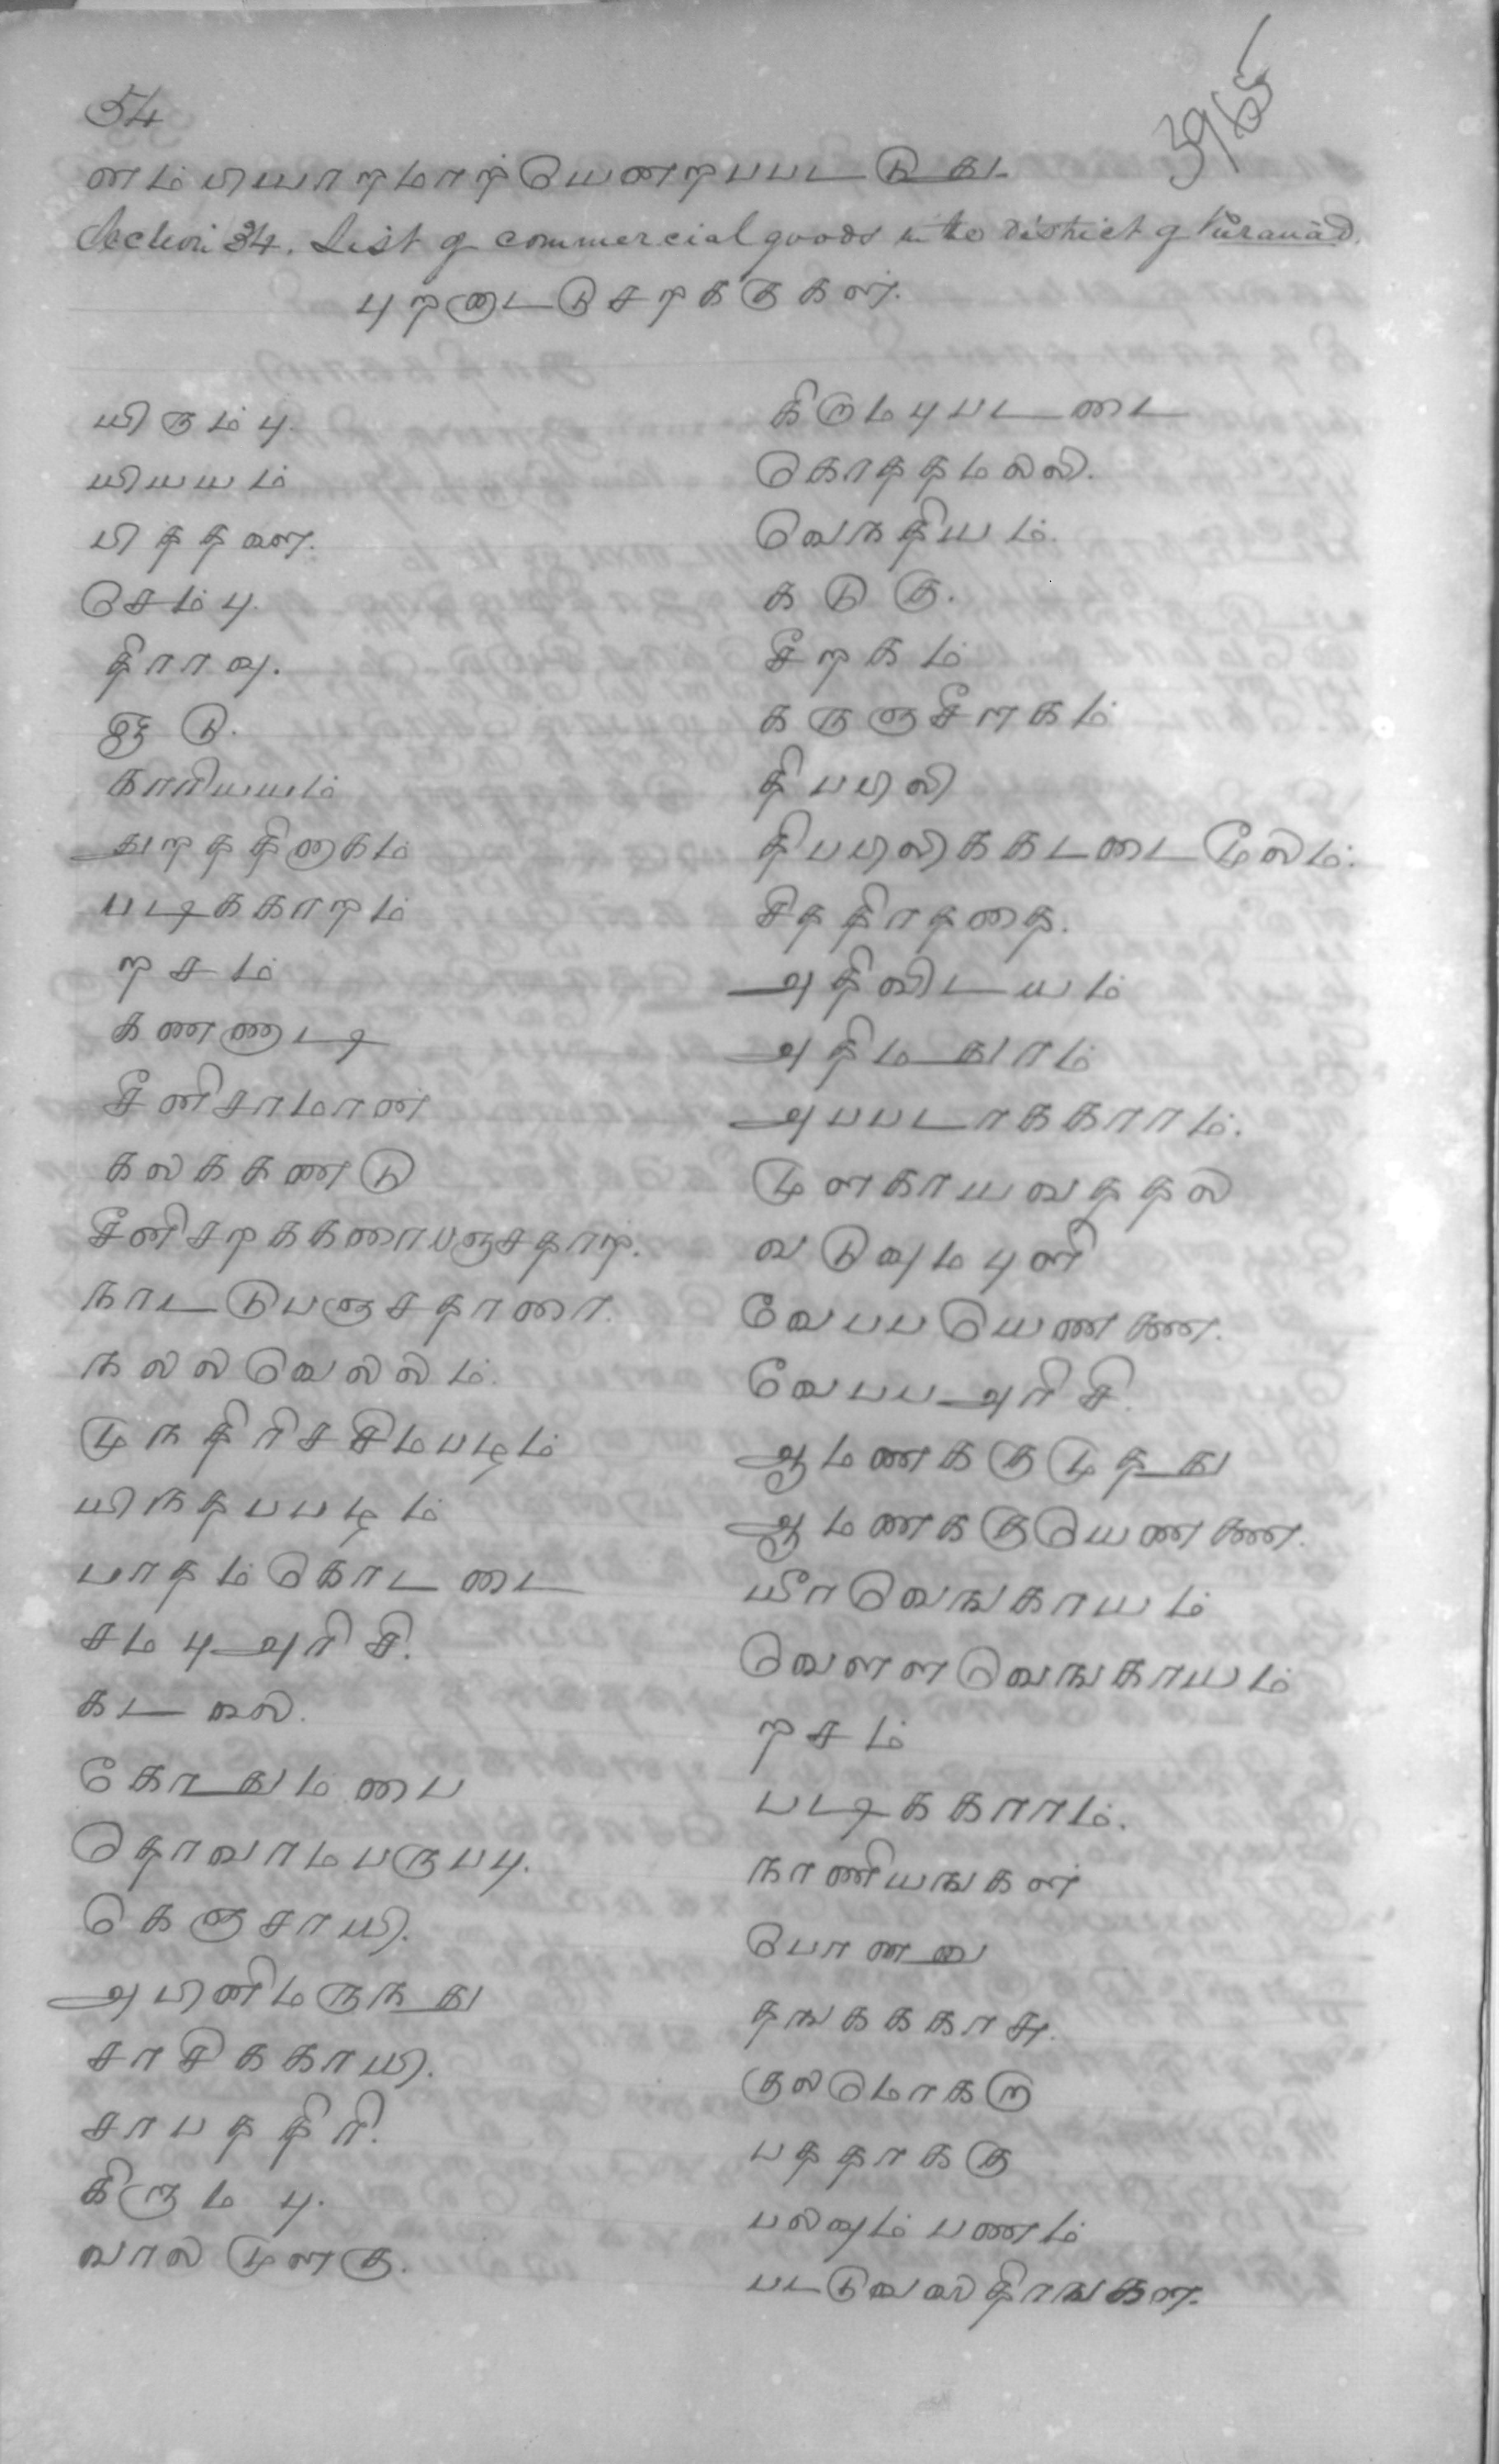 54
3965
Section 34. List of commercial goods in the District of Puranad.
புறனாட்டு சறக்குகள்.
யிரும்பு.
யியயம்
பித்தளை.
செம்பு.
தாரா வு.
ஓடு.
காரியயம்
துறத்தினாகம்
படிக்காறம்
றசம்
கண்ணாடி
சீனிசாமான்
கலக்கண்டு
நாட்டு பஞ்சதாரை.
நல்லவெல்லம்.
முந்திரிச்சிம்பழம்
யிந்தப்பழம்
பாதம்கொட்டை
சம்பு அரிசி.
கடலை.
கோதும்பை
தொவரம்பருப்பு.
கெஞ்சாயி.
அபினிமருந்து
சாசிக்காயி.
சாபத்திரி.
கிரும்பு.
வால்முளகு.
கிரும்புபட்டை
கொத்தமல்லி.
வெந்தியம்.
கடுகு.
சீறகம்
கருஞ்சீரகம்
திப்பிலி
திப்பிலிக்கட்டை மூலம்.
சித்திரத்தை.
அதிவிடயம்
அதிமதுரம்
அப்பட்டாக்காரம்.
முளகாயவத்தல்
வடுவும்புளி
வேப்பயெண்ணை.
வேப்பஅரிசி.
ஆமணக்குமுத்து
ஆமணக்குயெண்ணை.
யீரவெங்காயம்
வெள்ளவெங்காயம்
றசம்
படிக்காரம்.
நாணியங்கள்
பொன்னு
தங்கக்காசு.
குல்மொகரு
பத்தாக்கு
பலவும் பணம்
பட்டுவஸ்திரங்கள்.